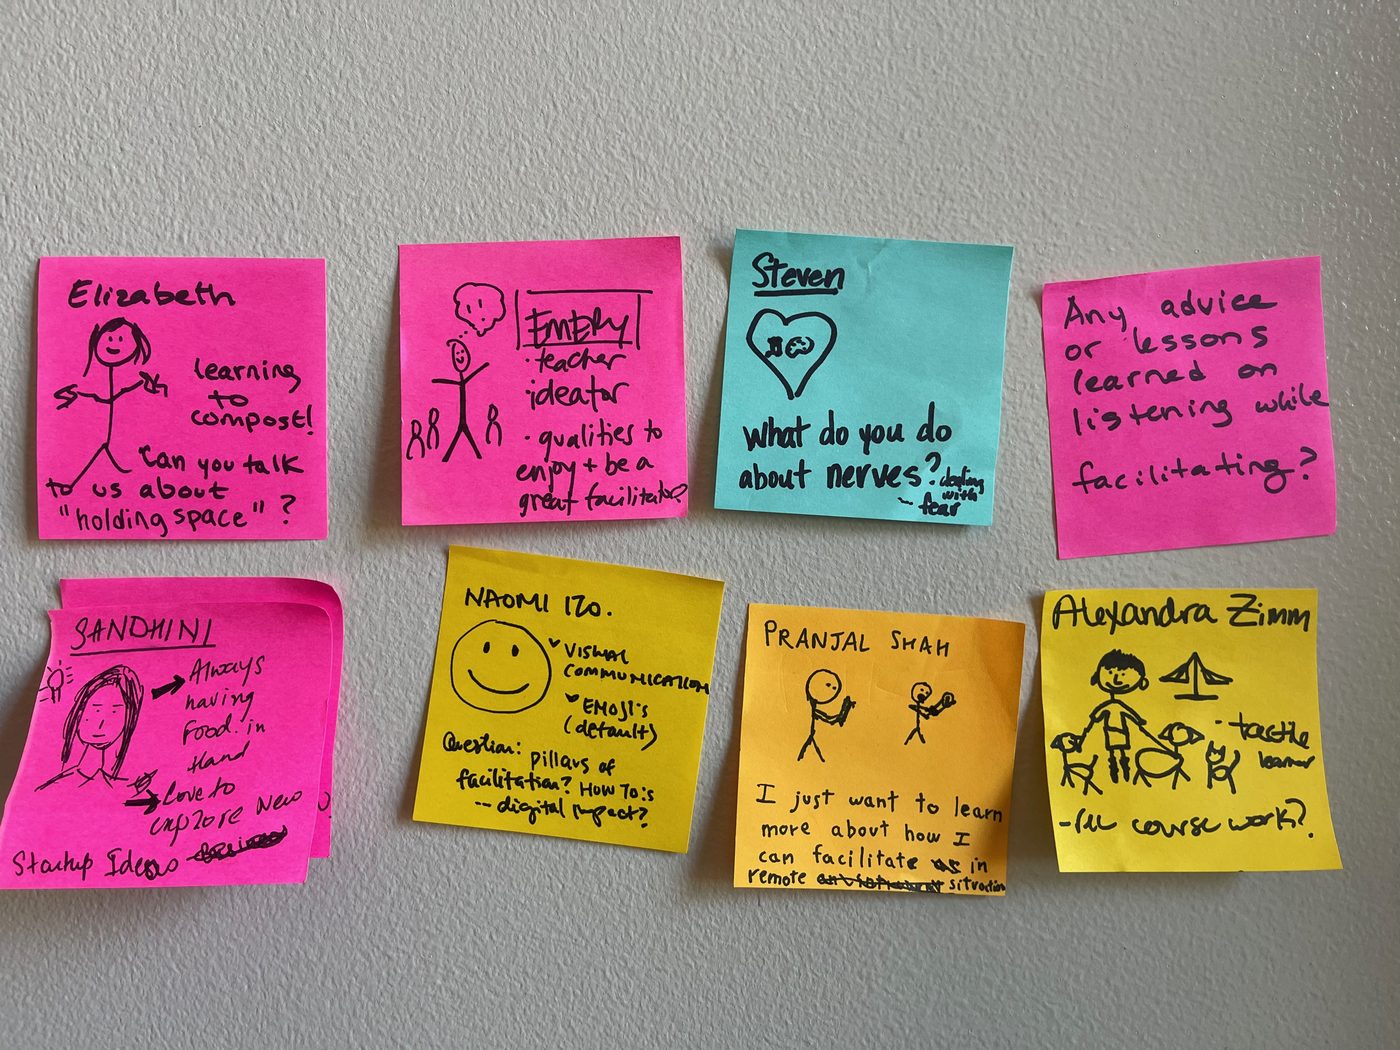 Elizabeth
learning
to
compost!
Can you talk
to us about
"holding space" ?
EMERY
· teacher
· ideator
· qualities to
enjoy + be a
great facilitator?
Steven
What do you do
about nerves?
dealing
with
fear
Any advice
or lessons
learned on
listening while
facilitating?
SANDHINI
Always
having
Food in
Hand
Love to
explore New
Startup Ideas
NAOMI IZO.
VISUAL
COMMUNICATION
EMOJI's
(default)
Question: pillars of
facilitation? How To's
-- digital impact?
PRANJAL SHAH
I just want to learn
more about how I
can facilitate in
remote situation
Alexandra Zimm
- tactile
learner
course work?